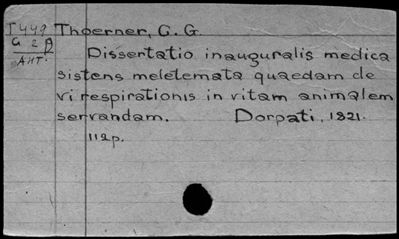 T449 Thoerner, G. G.
G 2 D
Ант.
Dissertatio inauguralis medica
sistens meletemata quaedam de
vi respirationis in vitam animalem
servandam. Dorpati, 1821.
112p.